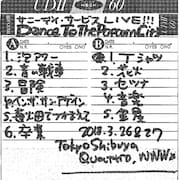 UDII 60
サニーデイ・サービス LIVE!!!
Dance To The Popcorn City
A
B
1. 泡アワー
2. 青い戦車
3. 冒険
5. 番外地でつかまえて
6. 卒業
1. Tシャツ
2. 花火
3. セツナ
4. 音楽
5. 金星
2018.3.26&27
Tokyo Shibuya
Quattro, WWWX